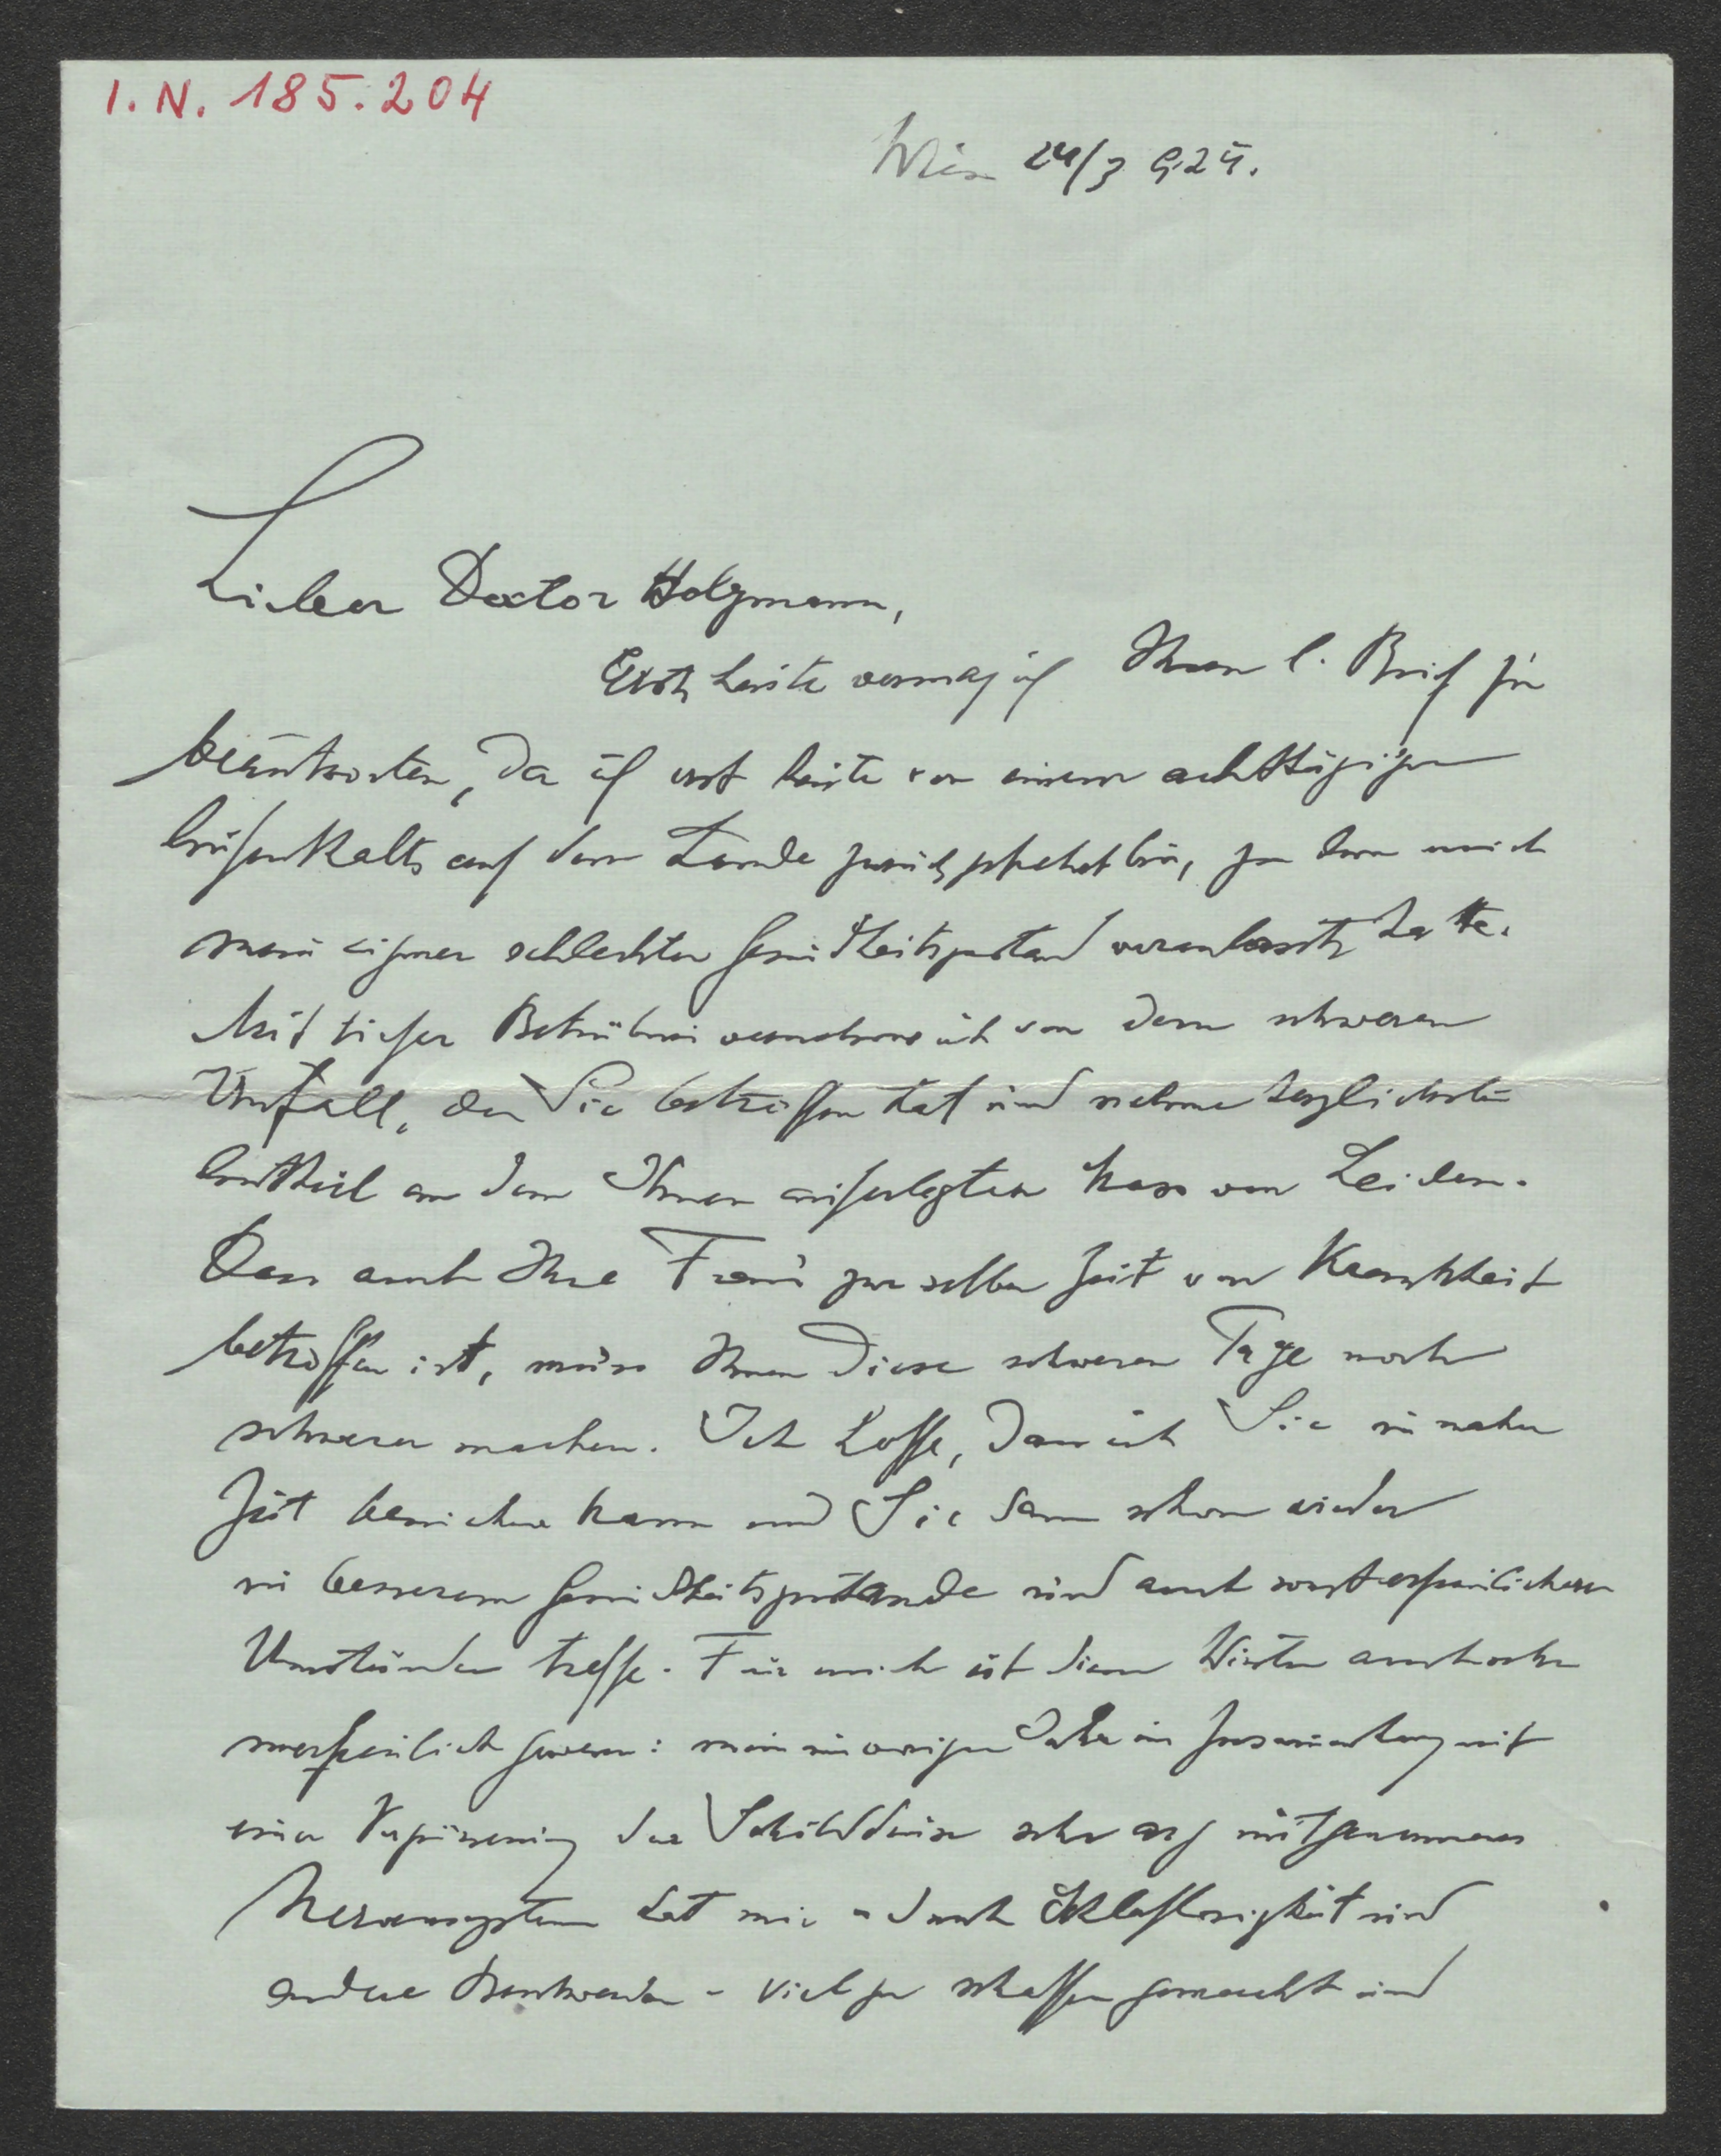 I. N. 185.204
Wien 24/3 924.
Lieber Doctor Holzmann,
Erst heute vermag ich Ihren l. Brief zu
beantworten, da ich erst heute von einem achttägigen
auf dem Lande zurückgekehrt bin, zu dem mich
mein eigner schlechter Gesundheitszustand veranlasst hatte.
Mit tiefer Betrübnis vernehme ich von dem schweren
Unfall, der Sie betroffen hat und nehme herzlichsten
Anttheil an dem Ihnen auferlegten Mass von Leiden.
Dass auch Ihre Frau zur selben Zeit von Krankheit
betroffen ist, muss Ihnen diese schweren Tage noch
schwerer machen. Ich hoffe, dass ich Sie in naher
Zeit besuchen kann und Sie dann schon wieder
in besserem Gesundheitszustande und auch sonst erfreulicheren
Umständen treffe. Für mich ist dieser Winter auch sehr
unerfreulich gewesen: mein im vorigen Jahr im Zusammenhang mit
einer Vergrösserung der Schilddrüse sehr arg mitgenommenes
Nervensystem hat mir – durch Schlaflosigkeit und
andere Beschwerden – viel zu schaffen gemacht und